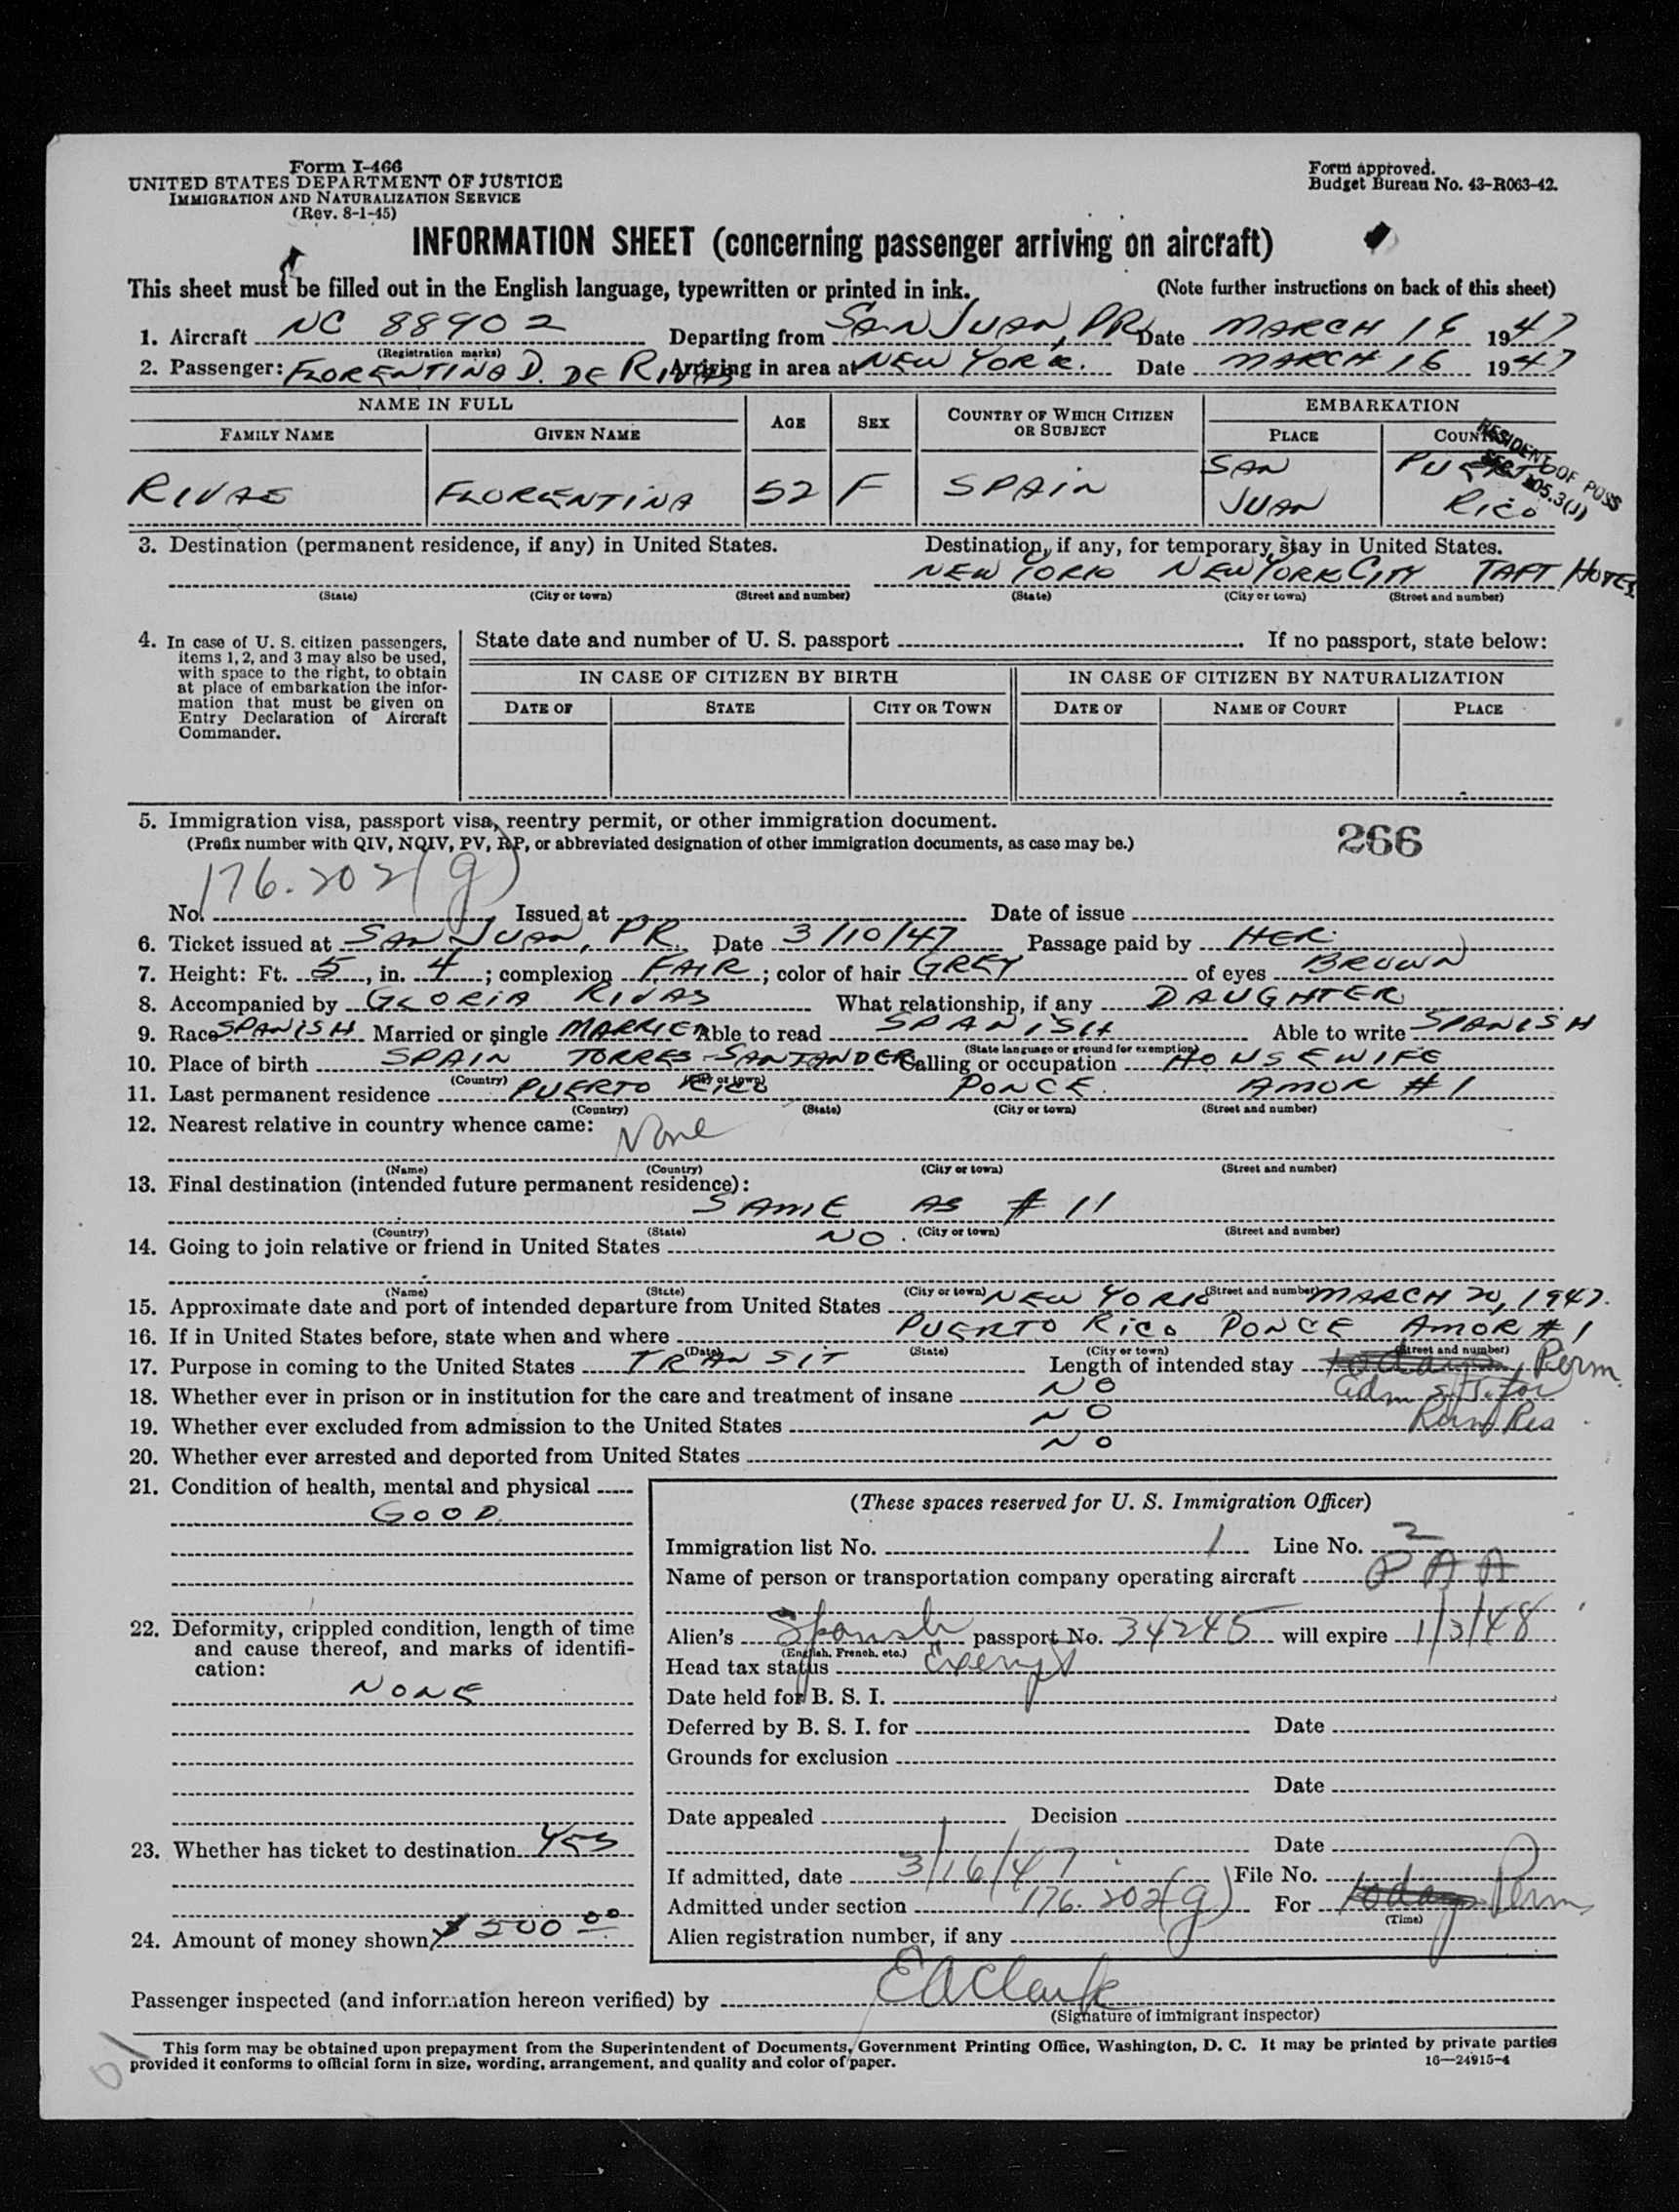 Form I-466
UNITED STATES DEPARTMENT OF JUSTICE
IMMIGRATION AND NATURALIZATION SERVICE
(Rev. 8-1-45)
Form approved.
Budget Bureau No. 43-R063-42.
INFORMATION SHEET (concerning passenger arriving on aircraft)
This sheet must be filled out in the English language, typewritten or printed in ink. (Note further instructions on back of this sheet)
1. Aircraft NC 88902 Departing from SAN JUAN, PR Date MARCH 16 1947
(Registration marks)
2. Passenger: FLORENTINA D. DE RIVAS Arriving in area at NEW YORK. Date MARCH 16 1947
NAME IN FULL AGE SEX COUNTRY OF WHICH CITIZEN OR SUBJECT EMBARKATION
FAMILY NAME GIVEN NAME PLACE COUNTRY
RESIDENT OF POSS
SEC 105.3(J)
RIVAS FLORENTINA 52 F SPAIN SAN JUAN PUERTO RICO
3. Destination (permanent residence, if any) in United States. Destination, if any, for temporary stay in United States.
NEW YORK NEW YORK CITY TAFT HOTEL
(State) (City or town) (Street and number) (State) (City or town) (Street and number)
4. In case of U. S. citizen passengers, items 1, 2, and 3 may also be used, with space to the right, to obtain at place of embarkation the information that must be given on Entry Declaration of Aircraft Commander.
State date and number of U. S. passport If no passport, state below:
IN CASE OF CITIZEN BY BIRTH IN CASE OF CITIZEN BY NATURALIZATION
DATE OF STATE CITY OR TOWN DATE OF NAME OF COURT PLACE
5. Immigration visa, passport visa, reentry permit, or other immigration document.
(Prefix number with QIV, NQIV, PV, RP, or abbreviated designation of other immigration documents, as case may be.)
266
176.202(g)
No. Issued at Date of issue
6. Ticket issued at SAN JUAN, PR. Date 3/10/47 Passage paid by HER
7. Height: Ft. 5, in. 4; complexion FAIR; color of hair GREY of eyes BROWN
8. Accompanied by GLORIA RIVAS What relationship, if any DAUGHTER
9. Race SPANISH Married or single MARRIED Able to read SPANISH Able to write SPANISH
(State language or ground for exemption)
10. Place of birth SPAIN TORRES-SANTANDER Calling or occupation HOUSEWIFE
(Country) (City or town)
11. Last permanent residence PUERTO RICO PONCE. AMOR #1
(Country) (State) (City or town) (Street and number)
12. Nearest relative in country whence came: None
(Name) (Country) (City or town) (Street and number)
13. Final destination (intended future permanent residence):
SAME AS #11
(Country) (State) (City or town) (Street and number)
14. Going to join relative or friend in United States NO.
(Name) (State) (City or town) (Street and number)
15. Approximate date and port of intended departure from United States NEW YORK MARCH 20, 1947.
16. If in United States before, state when and where PUERTO RICO PONCE AMOR #1
(Date) (State) (City or town) (Street and number)
17. Purpose in coming to the United States TRANSIT Length of intended stay Perm.
18. Whether ever in prison or in institution for the care and treatment of insane NO
19. Whether ever excluded from admission to the United States NO
20. Whether ever arrested and deported from United States NO
21. Condition of health, mental and physical
GOOD
22. Deformity, crippled condition, length of time and cause thereof, and marks of identification:
NONE
23. Whether has ticket to destination YES
24. Amount of money shown $500.00
(These spaces reserved for U. S. Immigration Officer)
Immigration list No. 1 Line No. 2
Name of person or transportation company operating aircraft PAA
Alien's Spanish passport No. 34245 will expire 1/3/48
(English, French, etc.)
Head tax status Exempt
Date held for B. S. I.
Deferred by B. S. I. for Date
Grounds for exclusion
Date
Date appealed Decision
Date
If admitted, date 3/16/47 File No.
Admitted under section 176.202(g) For today Perm
(Time)
Alien registration number, if any
Passenger inspected (and information hereon verified) by EAClark
(Signature of immigrant inspector)
This form may be obtained upon prepayment from the Superintendent of Documents, Government Printing Office, Washington, D. C. It may be printed by private parties
provided it conforms to official form in size, wording, arrangement, and quality and color of paper.
16—24915-4